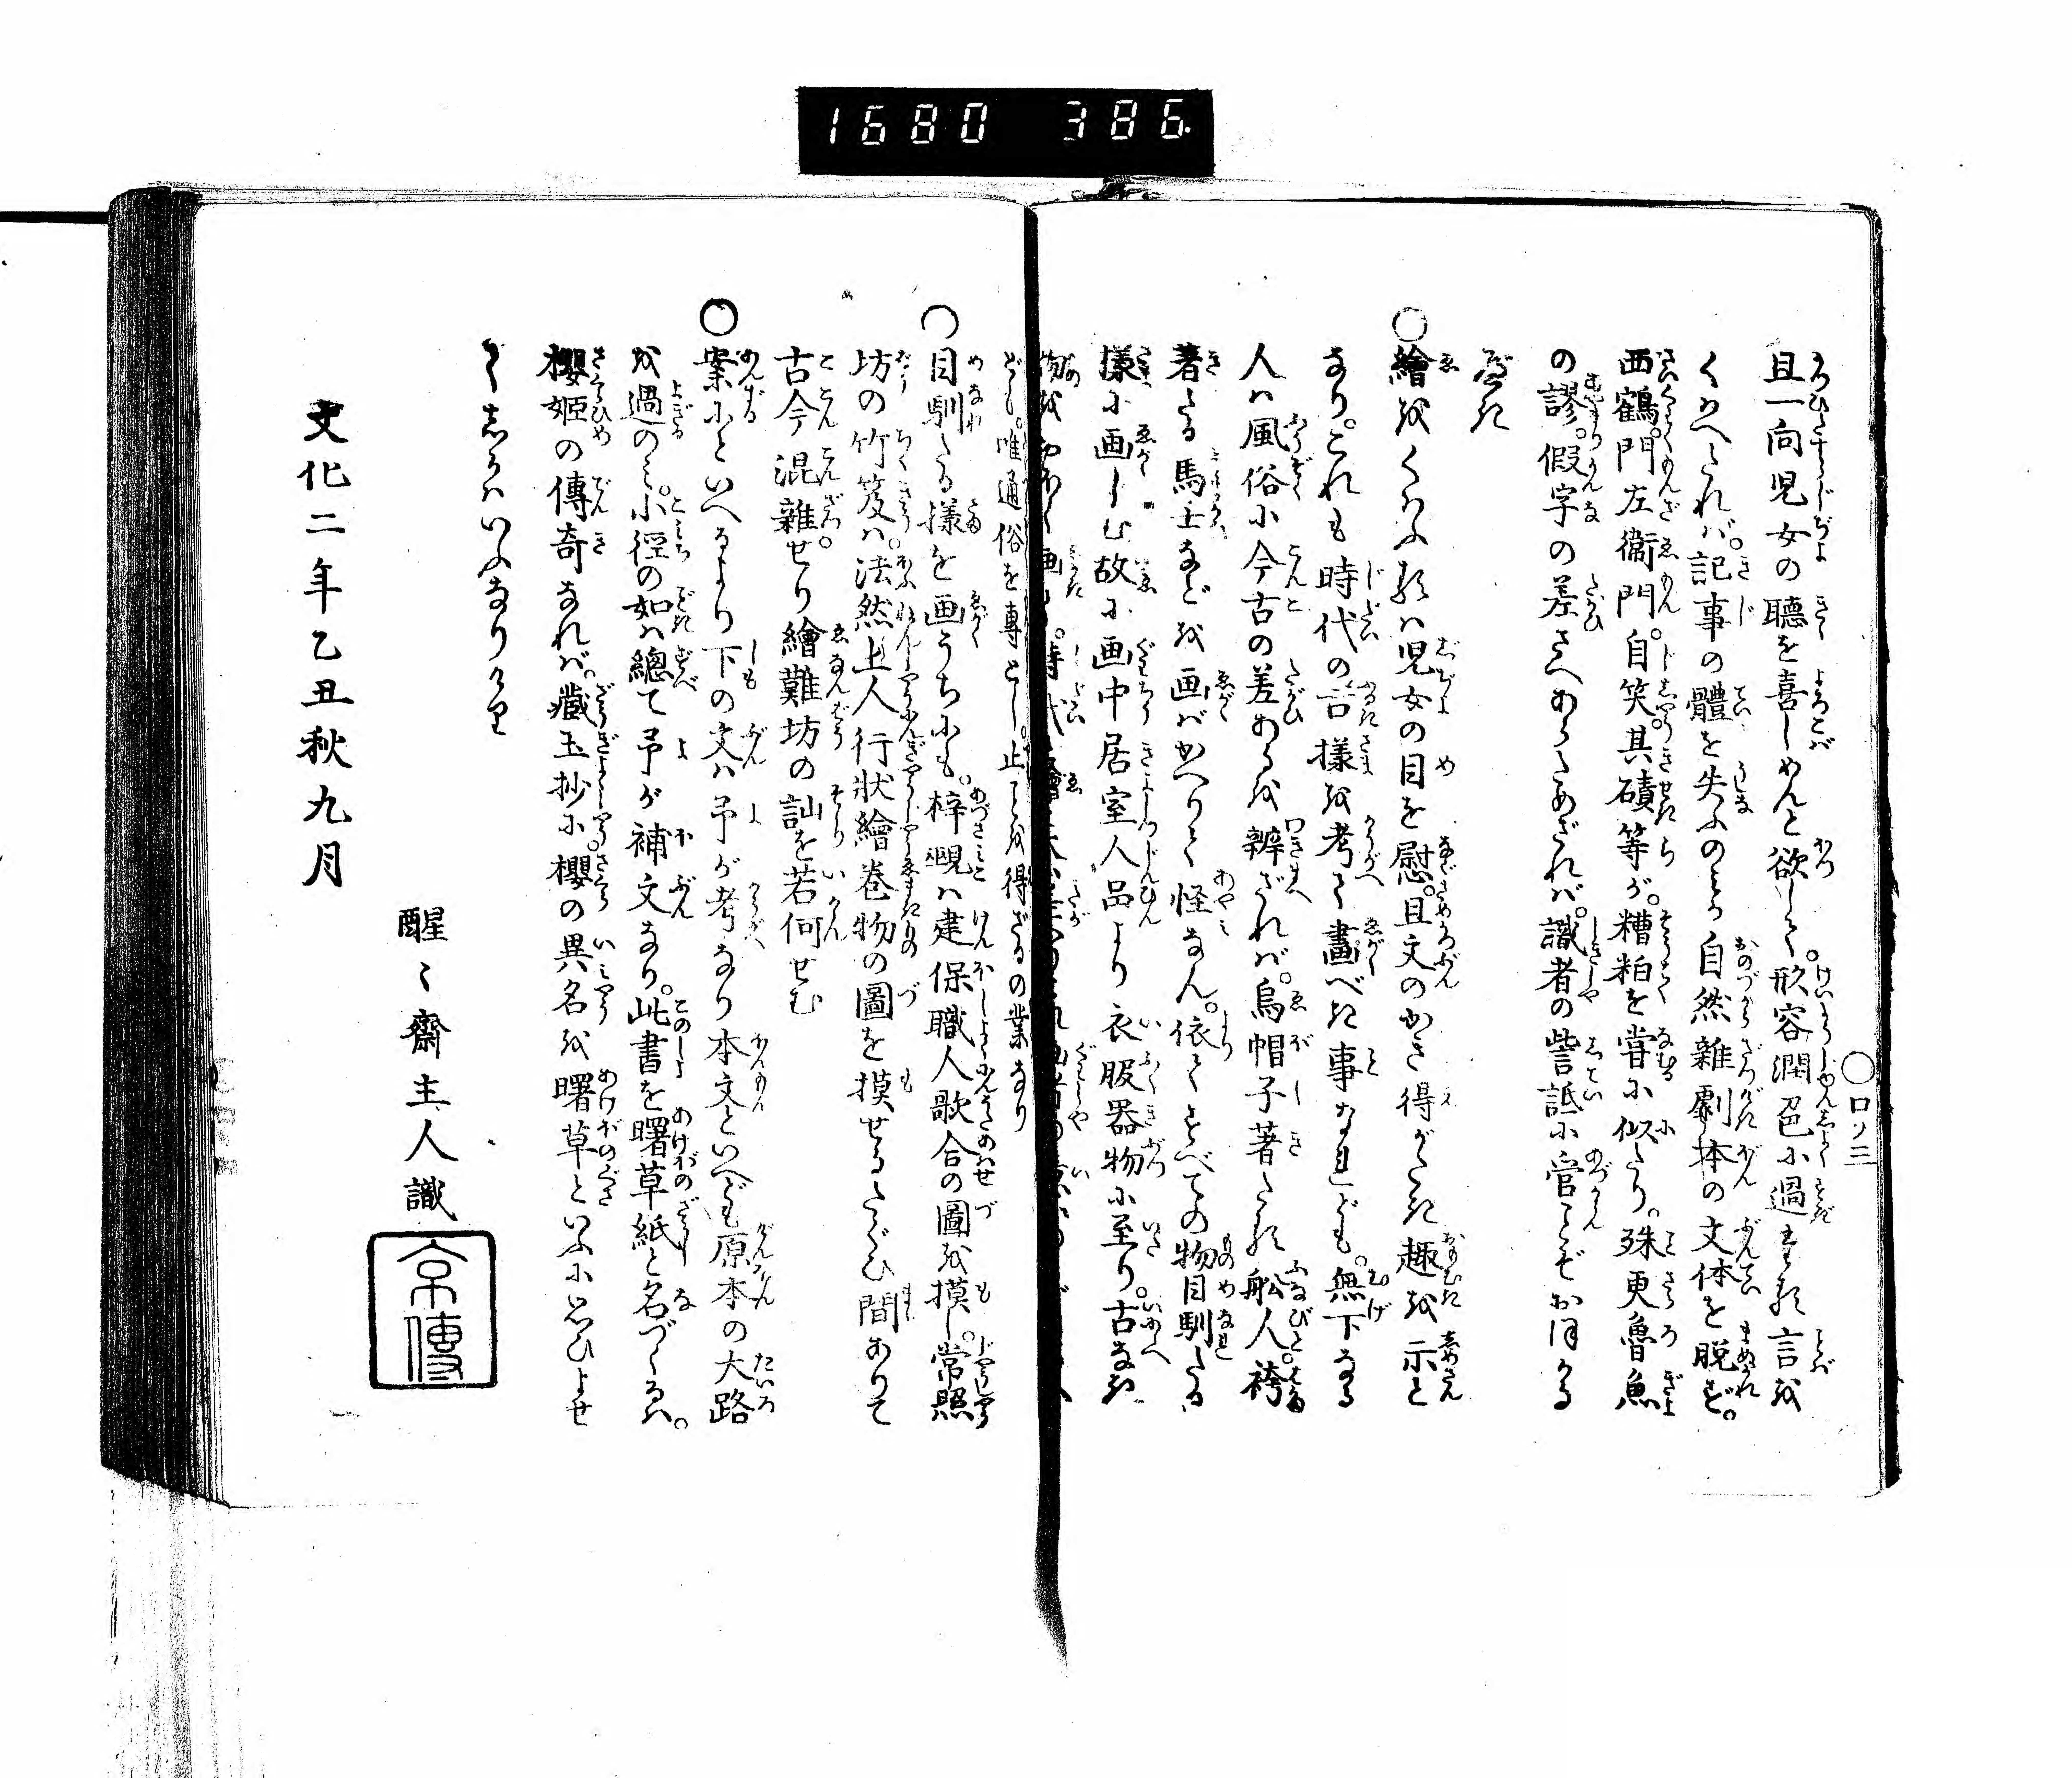 1680 386.
〇口ノ三
且一向児女の聴を喜しめんと欲して。形容潤色に過まる言を
くはへたれば。記事の體を失ふのみか自然雑劇本の文体を脱ず。
西鶴。門左衛門。自笑。其磧等が。糟粕を嘗に似たり。殊更魯魚
の謬。假字の差さへあらためざれば。識者の訾詆に當らんことぞおほかる
べき
〇繪をくはふるは児女の目を慰。且文のかき得がたき趣を示と
なり。これも時代の古様を考て畫べき事なれども。無下なる
人は風俗に今古の差あるを辨ざれば。烏帽子著たる舩人。袴
著たる馬士などを画ばかへりて怪なん。依てすべての物目馴たる
様に画しむ故に画中居室人品より衣服器物に至り。古なき
物をおほく画り。時代
ども。唯通俗を専とし。止ことを得ざるの業なり
〇目馴たる様を画うちにも。梓覡は建保職人歌合の圖を摸し。常照
坊の竹笈は。法然上人行状繪巻物の圖を摸せるたぐひ間ありて
古今混雑せり繪難坊の訕を若何せむ
〇案にといへるより下の文は予が考なり本文といへども原本の大路
を過のみ。小徑の如は總て予が補文なり。此書を曙草紙と名づくるは。
櫻姫の傳奇なれば。蔵玉抄に櫻の異名を曙草といふに思ひよせ
てしかはいふなりけり
文化二年乙丑秋九月
醒々齋主人識
京傳